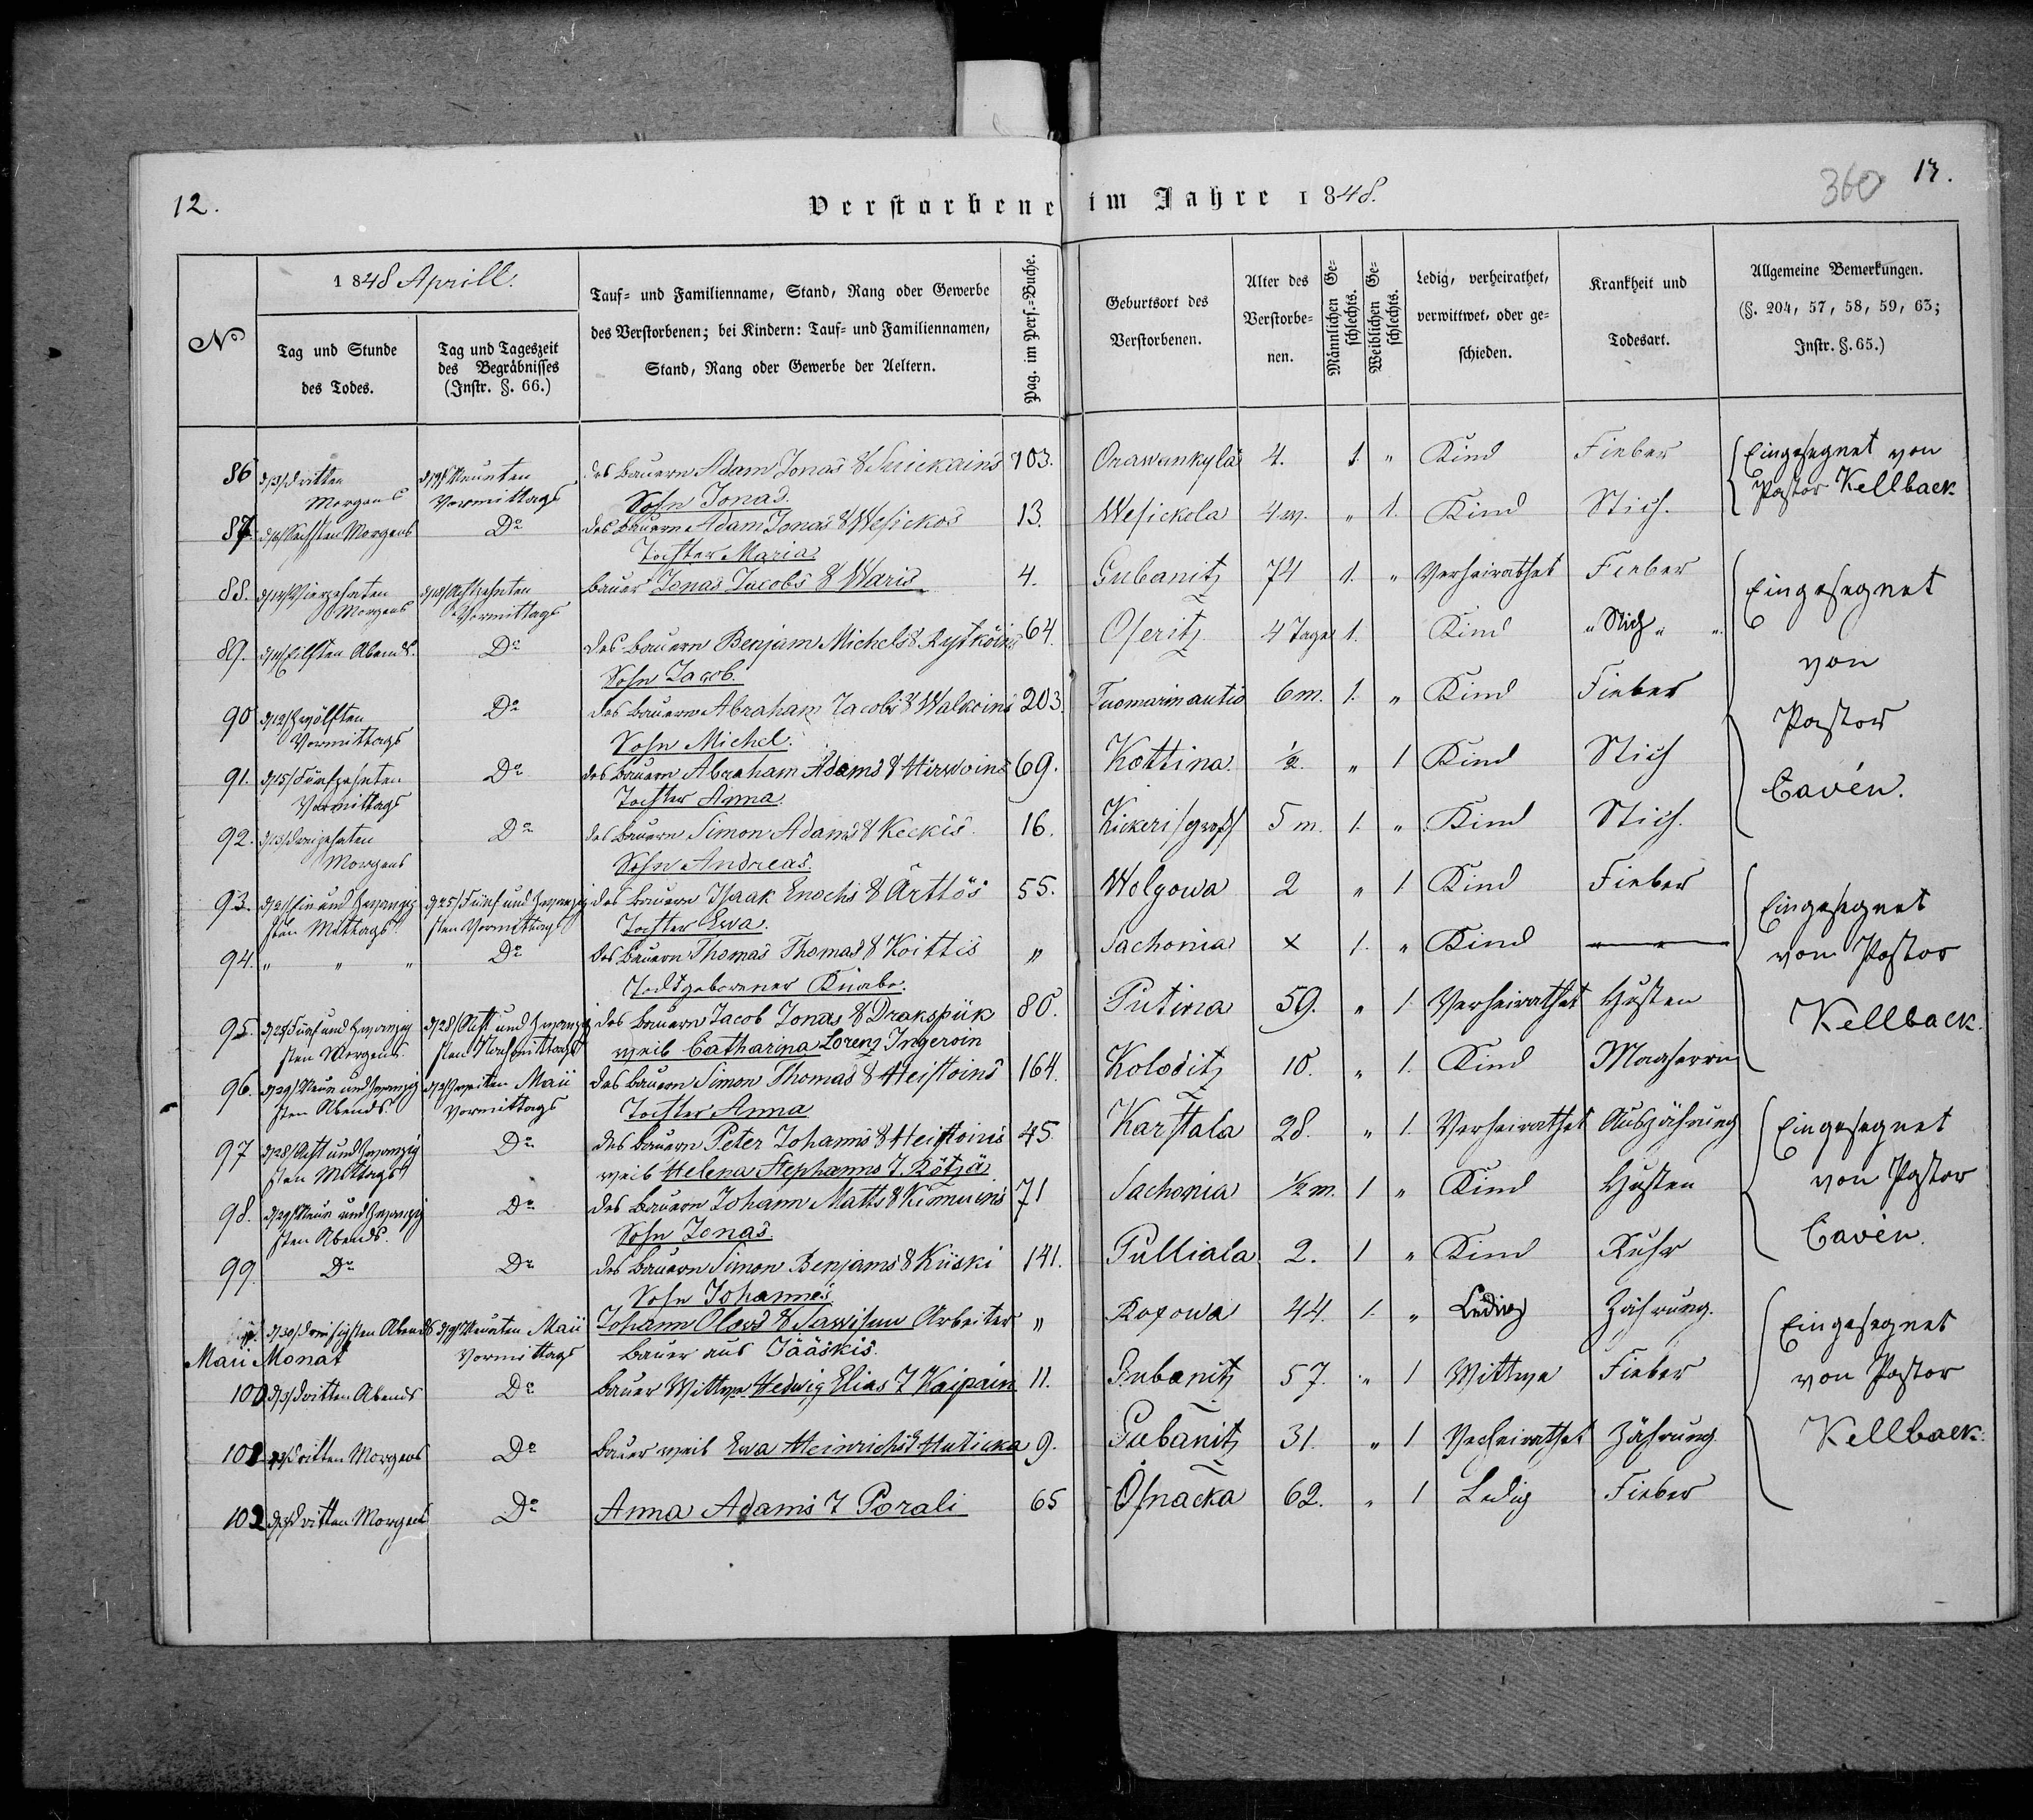 12.
Verstorbene im Jahre 1848.
360
13.
No
1848 Aprill.
Tag und Stunde des Todes.
Tag und Tageszeit des Begräbnisses (Instr. §. 66.)
Tauf- und Familienname, Stand, Rang oder Gewerbe des Verstorbenen; bei Kindern: Tauf- und Familiennamen, Stand, Rang oder Gewerbe der Aeltern.
Pag. im Pers.-Buche.
Geburtsort des Verstorbenen.
Alter des Verstorbenen.
Männlichen Geschlechts.
Weiblichen Geschlechts.
Ledig, verheirathet, verwittwet, oder geschieden.
Krankheit und Todesart.
Allgemeine Bemerkungen. (§. 204, 57, 58, 59, 63; Instr. §. 65.)
86 d/3/ dritten Morgens d/9/ Neunten Vormittags des Bauern Adam Jonas S Suickains 103. Orawankylä 4. 1. " Kind Fieber
Sohn Jonas.
Eingesegnet von Pastor Kellback
87. d/6/ Sechsten Morgens Do des Bauern Adam Jonas S Wesickos 13. Wesickela 4 w. " 1. Kind Stich.
Tochter Maria
88. d/14/ Vierzehnten Morgens d/18/ Achtzehnten Vormittags Bauer Jonas Jacobs S Waris 4. Gubanitz 74 1. " Verheirathet Fieber
Eingesegnet von Pastor Cavén.
89. d/11/ Eilften Abends. Do des Bauern Benjam Michels S Rystköins 64. Oseritz 4 Tage 1. Kind " Stich " "
Sohn Jacob.
90 d/12/ Zwölften Vormittags Do des Bauern Abraham Jacobs S Walkoins 203. Tuomarinautio 6 m. 1. " Kind Fieber
Sohn Michel.
91. d/15/ Fünfzehnten Vormittags Do des Bauern Abraham Adams S Hirwoins 69. Kottina. 1/2. " 1 Kind Stich
Tochter Anna.
92. d/13/ Dreizehnten Morgens Do des Bauern Simon Adams S Keckis. 16. Kickeri /gross/ 5 m. 1. " Kind Stich.
Sohn Andreas.
93. d/21/ Ein und Zwanzigsten Mittags. d/25/ Fünf und Zwanzigsten Vormittags des Bauern Isaak Enochs S Ärttös 55. Wolgowa 2 " 1 Kind Fieber
Tochter Ewa.
Eingesegnet vom Pastor Kellback.
94. " " " Do des Bauern Thomas Thomas S Koittis " Sachonia x 1. " Kind
Todtgeborener Knabe.
95. d/25/ Fünf und Zwanzigsten Morgens. d/28/ Acht und Zwanzigsten Nachmittags des Bauern Jacob Jonas S Drakspiik 80. Putina 59. " 1. Verheirathet Husten
Weib Catharina Lorenz Ingeroin
96. d/29/ Neun und Zwanzigsten Abends d/2/ Zweiten Maii Vormittags des Bauern Simon Thomas S Heistoins 164. Koloditz 10. " 1. Kind
Tochter Anna
97 d/28/ Acht und Zwanzigsten Mittags Do des Bauern Peter Johanns S Heistoins 45. Karstala 28. " 1. Verheirathet Auszährung
Weib Helena Stephanns T Rötzä
Eingesegnet von Pastor Cavén.
98. d/29/ Neun und Zwanzigsten Abends. Do des Bauern Johann Matts S Kiomuins 71 Sachonia 1/2 m. 1 " Kind Husten
Sohn Jonas.
99. Do Do des Bauern Simon Benjams S Kiiski 141. Pulliala 2. 1 " Kind Ruhr
Sohn Johannes
d/30/ Dreisigsten Abends d/9/ Neunten Maii Vormittags Johann Olavs S Sawisuu Arbeiter " Ropowa 44. 1. " Ledig Zährung.
Bauer aus Jääskis.
Eingesegnet von Pastor Kellback.
Maii Monat
100 d/3/ Dritten Abends Do Bauer Wittwe Hedwig Elias T Kaipain 11. Gubanitz 57. " 1 Wittwe Fieber
101 d/3/ Dritten Morgens Do Bauer Weib Ewa Heinrichs T Huticka 9. Gubanitz 31. " 1 Verheirathet Zährung
102 d/3/ Dritten Morgens Do Anna Adams T Porali 65 Osnacka 62. " 1 Ledig Fieber